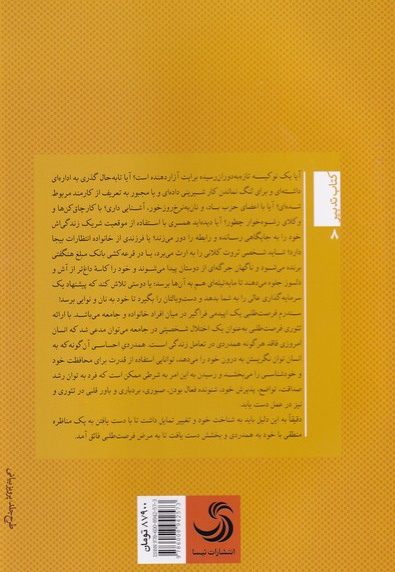 کتاب تدبیر
۸
آیا یک نوکیسه تازه‌به‌دوران‌رسیده برایت آزاردهنده است؟ آیا تا‌به‌حال گذری به اداره‌ای
داشته‌ای و برای لنگ نماندن کار شیرینی داده‌ای و یا مجبور به تعریف از کارمند مربوط
شده‌ای؟ آیا با اعضای حزب باد، و نان‌به‌نرخ‌روزخور، آشنایی داری؟ با کارچاق‌کن‌ها و
وکلای رشوه‌خوار چطور؟ آیا دیده‌اید همسری با استفاده از موقعیت شریک زندگی‌اش
خود را به جایگاهی رسانده و رابطه را دور می‌زند؟ یا فرزندی از خانواده انتظارات بیجا
دارد؟ شاید شخصی ثروت کلانی را به ارث می‌برد، یا در قرعه‌کشی بانک مبلغ هنگفتی
برنده می‌شود و ناگهان جرگه‌ای از دوستان پیدا می‌شوند و خود را کاسهٔ داغ‌تر از آش و
دلسوز جلوه می‌دهند تا مایه‌تیله‌ای هم به آن‌ها برسد؛ یا دوستی تلاش کند که پیشنهاد یک
سرمایه‌گذاری عالی را به شما بدهد و دست‌وبالتان را بگیرد تا خود به نان و نوایی برسد!
سندرم فرصت‌طلبی یک اپیدمی فراگیر در میان افراد خانواده و جامعه می‌باشد. با ارائه
تئوری فرصت‌طلبی به‌عنوان یک اختلال شخصیتی در جامعه می‌توان مدعی شد که انسان
امروزی فاقد هرگونه همدردی در تعامل زندگی است. همدردی احساسی آن‌گونه‌که به
انسان توان نگریستن به درون خود را می‌دهد، توانایی استفاده از قدرت برای محافظت خود
و خودشناسی را می‌بخشد و رسیدن به این امر به شرطی ممکن است که فرد به توان رشد
صداقت، تواضع، پذیرش خود، شنونده فعال بودن، صبوری، بردباری و باور قلبی در تئوری و
نیز در عمل دست یابد.
دقیقاً به این دلیل باید به شناخت خود و تغییر تمایل داشت تا با دست یافتن به یک مناظره
منطقی با خود به همدردی و بخشش دست یافت تا به مرض فرصت‌طلبی فائق آمد.
طرح جلد: پرویز بیانی
۸۷۹۰۰ تومان
انتشارات تیسا